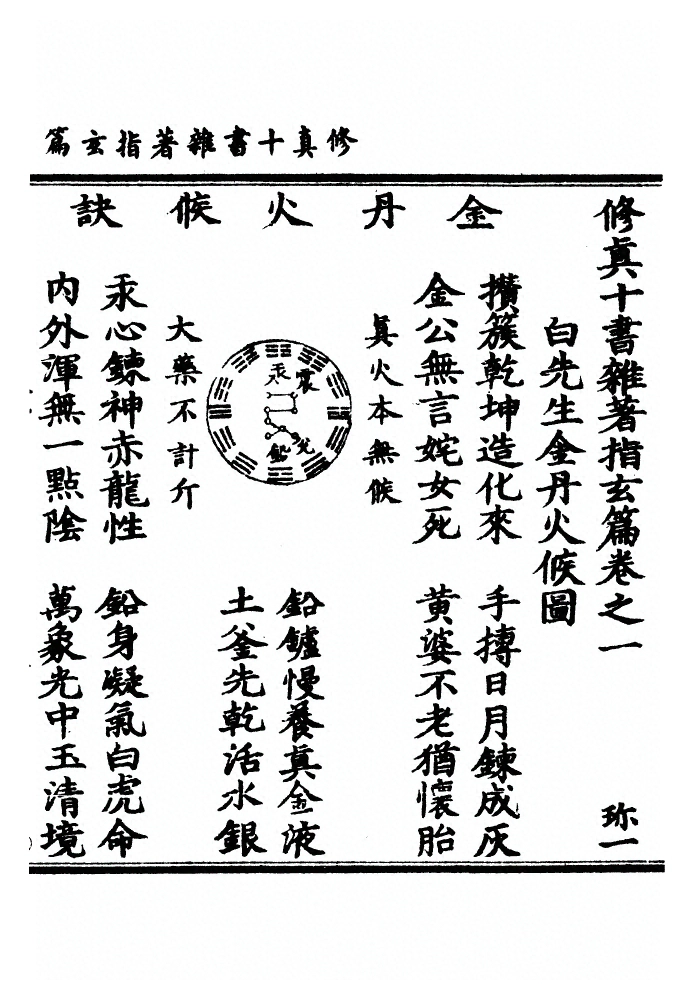 修真十書雜著指玄篇
修真十書雜著指玄篇卷之一 珎一
白先生金丹火候圖
金丹火候訣
攢簇乾坤造化來 手摶日月鍊成灰
金公無言姹女死 黃婆不老猶懷胎
真火本無候
震
汞
兌
鉛
大藥不計斤
鉛鑪慢養真金液
土釜先乾活水銀
汞心鍊神赤龍性 鉛身凝氣白虎命
內外渾無一點陰 萬象光中玉清境